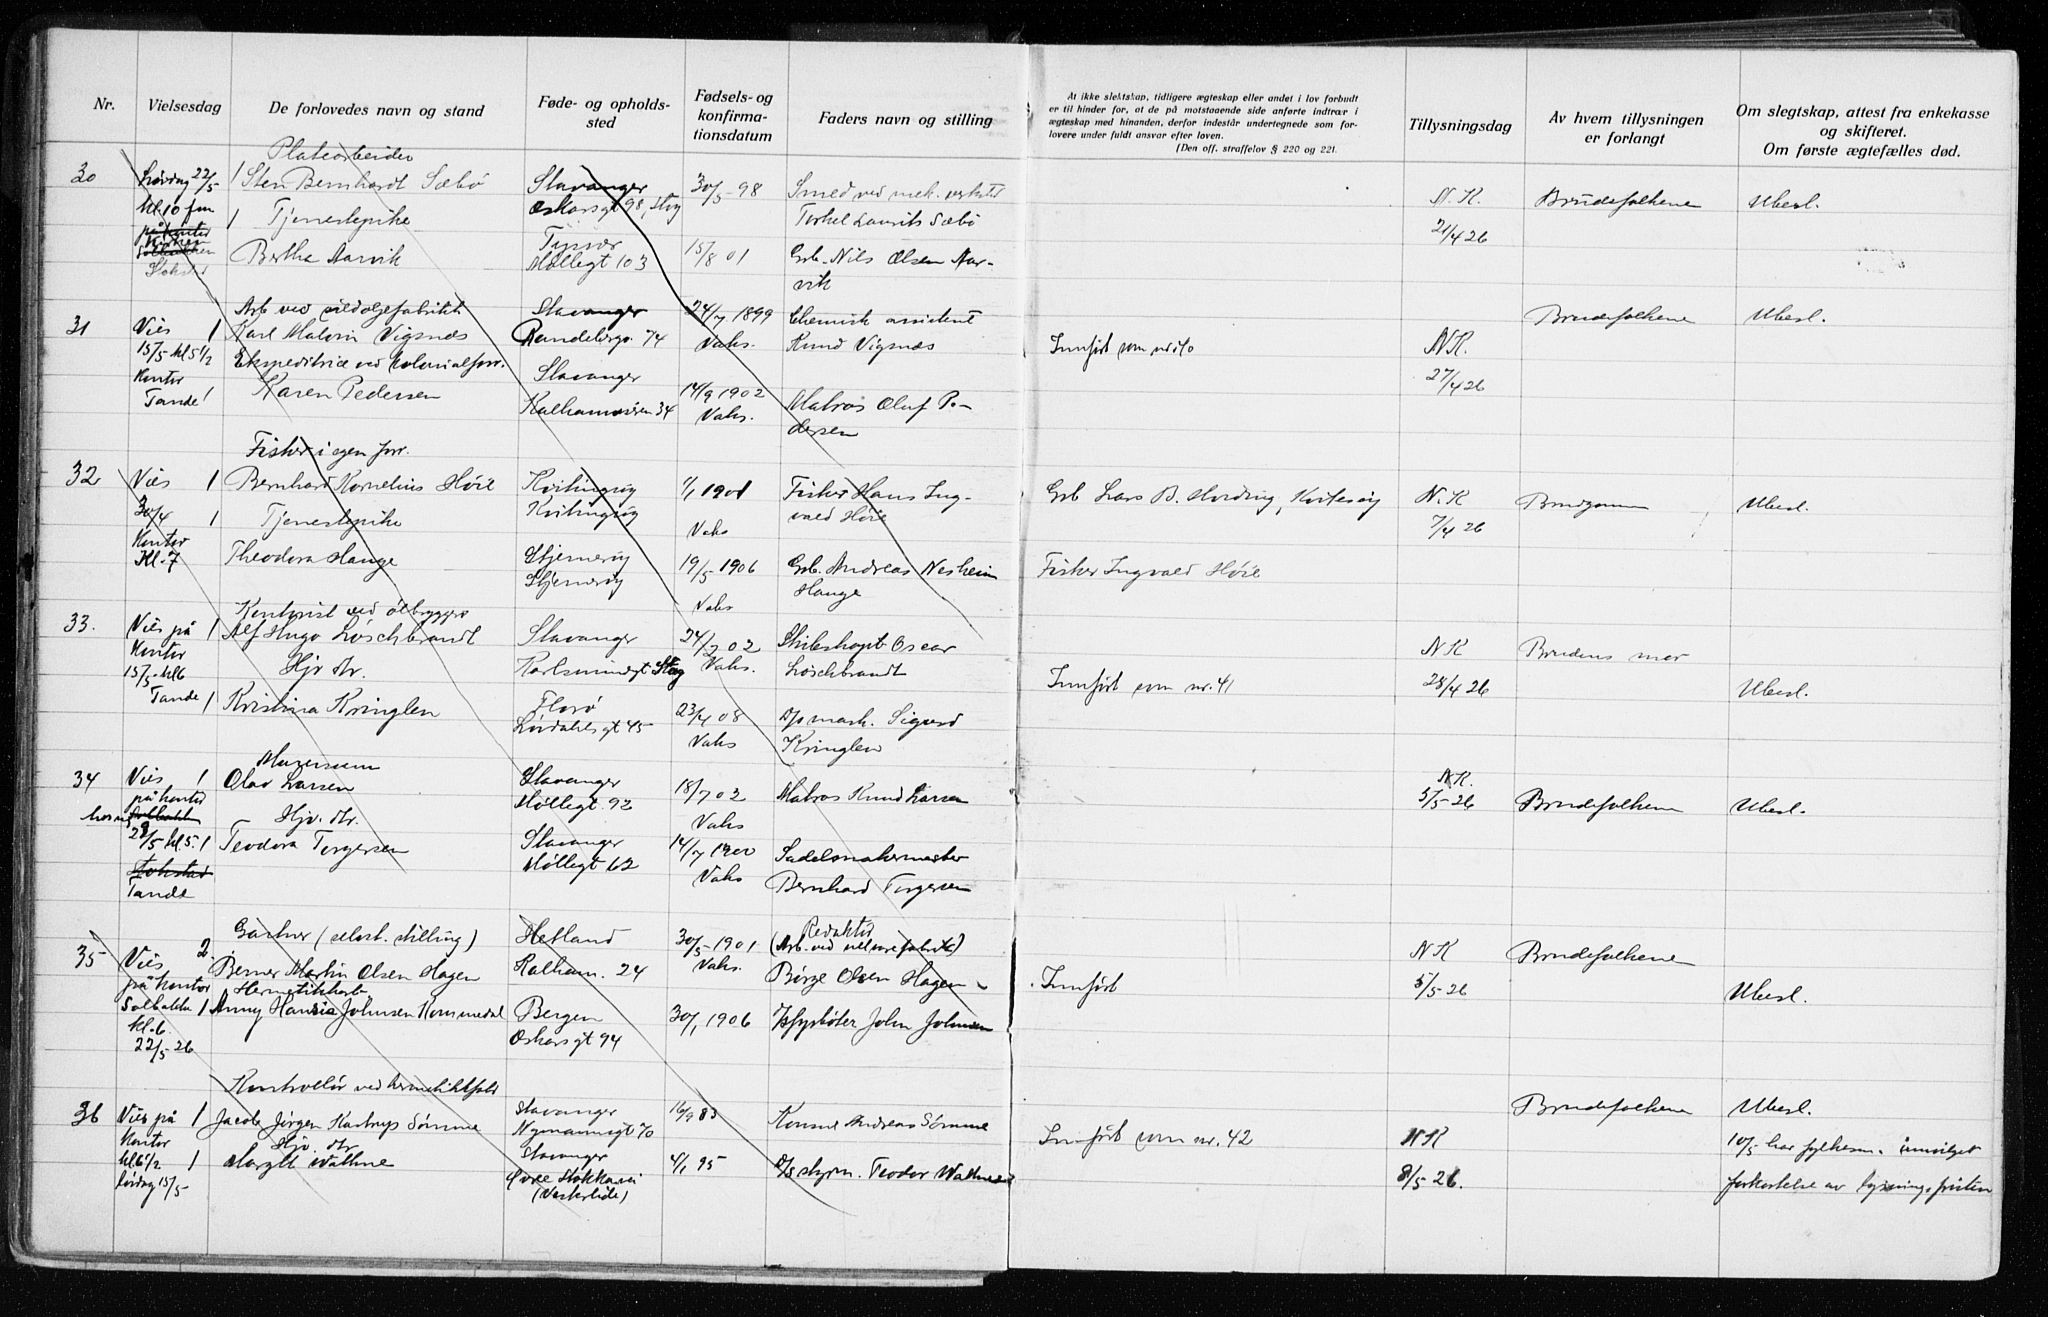 Nr.
Vielsesdag
De forlovedes navn og stand
Føde- og opholds-
sted
Fødsels- og
konfirma-
tionsdatum
Faders navn og stilling
At ikke slektskap, tidligere ægteskap eller andet i lov forbudt
er til hinder for, at de på motstaaende side anførte indtrær i
ægteskap med hinanden, derfor indestår undertegnede som for-
lovere under fuldt ansvar efter loven.
(Den off. straffelov § 220 og 221.
Tillysningsdag
Av hvem tillysningen
er forlangt
Om slegtskap, attest fra enkekasse
og skifteret.
Om første ægtefælles død.
30
Lørdag 22/5
kl. 10 fm
på kontor
Stokstad
Platearbeider
1 Sten Bernhardt Sæbø
1 Tjenestepike
Bertha Aarvik
Stavanger
Oskarsgt 98, Stvg
Tysvær
Møllegt 103
30/5-98
15/8 01
Smed ved mek. verksted
Torkel Laurits Sæbø
Grb. Nils Olsen Aar-
vik
N. K.
21/4 26
Brudefolkene
Ubesl.
31
Vies 1
15/5 kl 5 1/2
Kontor
Tande 1
Arb. ved sildoljefabrikk
Karl Malvin Vigsnes
Ekspeditrice ved kolonialforr.
Karen Pedersen
Stavanger
Randabergv. 74
Stavanger
Kalhammervn 34
24/7 1899
Vaks.
14/9 1902
Vaks.
Chemisk assistent
Knud Vigsnes
Matros Oluf Pe-
dersen
Innført som nr 40
N.K.
27/4 26
Brudefolkene
Ubesl.
32
Vies 1
30/4 1
Kontor
Kl. 7
Fisker i egen forr.
Bernhard Kornelius Høie
Tjenestepike
Theodora Hauge
Kvitingsøy
Kvitingsøy
Stjernerøy
Stjernerøy
1/1 1901
Vaks
19/5 1906
Vaks
Fisker Hans Ing-
vald Høie
Grb. Andreas Nesheim
Hauge
Grb Lars B.
Fisker Ingvald Høie
N. K
7/4 26
Brudgommen
Ubesl.
33.
Vies på 1
Kontor
15/5 - kl 6
Tande 1
Kontorist ved ølbryggeri
Alf Hugo Löschbrandt
Hjv. dtr.
Kristina Kringlen
Stavanger
Karlsminnegt Stvg
Florø
Lövdahlsgt 45
24/2 02
Vaks.
23/4 08
Vaks
Skibskapt Oscar
Löschbrandt
D/s mask. Sigurd
Kringlen
Innført som nr. 41
N K
28/4 26
Brudens mor
Ubesl.
34
Vies 1
på kontor
29/5 kl 5. 1
Stokstad
Tande
Murersvenn
Olav Larsen
Hjv. dtr.
Teodora Torgersen
Stavanger
Møllegt. 92
Stavanger
Møllegt 62
18/7 02
Vaks
14/7 1900
Vaks
Matros Knud Larsen
Sadelmakermester
Bernhard Torgersen
N.K.
5/5-26
Brudefolkene
Ubesl.
35
Vies 2.
på kontor
Solbakken 1
kl. 6.
22/5-26
Gartner (selvst. stilling)
Berner Martin Olsen Hagen
Hermetikkarb
Anny Hansia Johnsen Kommedal
Hetland
Kalham. 24
Bergen
Oskarsgt 94
30/5-1901
Vaks.
30/1 1906
Redaktør
Børge Olsen Hagen
Fyrbøter John Johnsen
Innført
N K
5/5-26
Brudefolkene
Ubesl.
36
Vies på 1
Kontor
kl 6 1/2 1
Lørdag 15/5
Kontrollør ved hermetikkfabr
Jacob Jørgen Kastrup Sømme
Hjv. dtr.
Margit Wathne
Stavanger
Nymannsgt 70
Stavanger
Øvre Stokkavei
(Vesterlide)
16/9 83
4/1 95
Konsul Andreas Sømme
D/s styrm. Teodor Wathne
Innført som nr. 42
N K
8/5-26.
Brudefolkene
Ubesl.
10/5 har fylkesm. innvilget
forkortelse av lysningsfristen